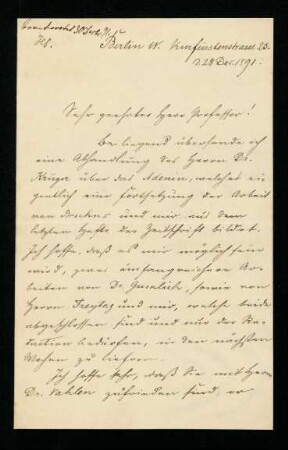 Berlin W. Kurfürstenstrasse 25.
d. 28 Dec. 1891.
Sehr geehrter Herr Professor!
Beiliegend übersende ich
eine Abhandlung des Herrn Dr.
Krüger über das Adenin, welches ei-
gentlich eine Fortsetzung der Arbeit
von und mir aus dem
letzten Hefte der Zeitschrift bildet.
Ich hoffe, daß es mir möglich sein
wird, zwei umfangreichere Ar-
beiten von Dr. sowie von
Herrn Freytag und mir, welche beide
abgeschlossen sind und nur der Re-
daction bedürfen, in den nächsten
Wochen zu liefern.
Ich hoffe sehr, daß Sie mit Herrn
Dr. Vahlen zufrieden sind, er